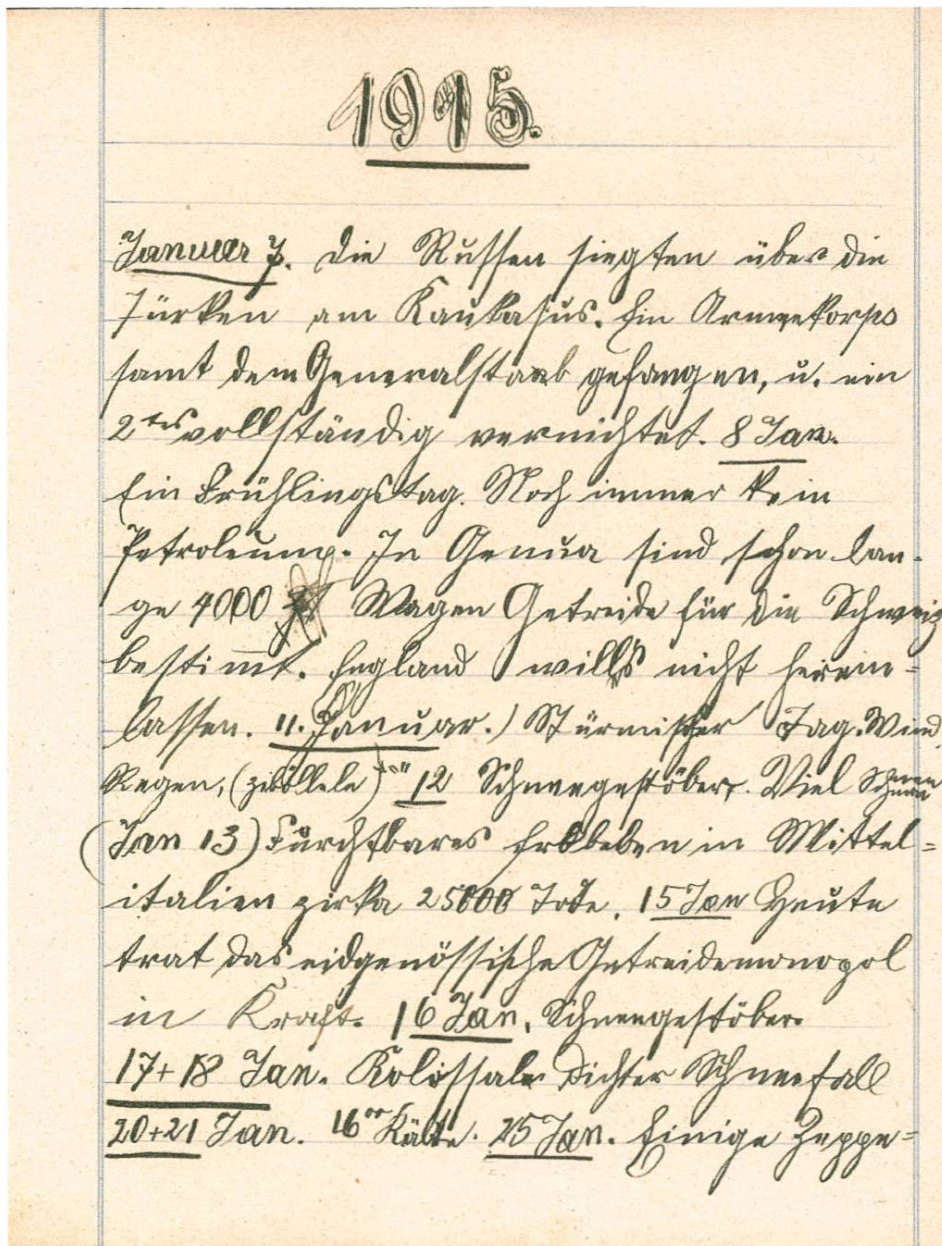 1915.
Januar 7. Die Russen siegten über die
Türken am Kaukasus. Ein Armeekorps
samt dem Generalstaab gefangen, u. ein
2tes vollständig vernichtet. 8 Jan.
Ein Frühlingstag. Noch immer kein
Petroleum. In Genua sind schon lan-
ge 4000 Wagen Getreide für die Schweiz
bestimt. England will's nicht herein=
lassen. 11. Januar.) Stürmischer Tag. Wind,
Regen, 12 Schneegestöber. Viel Schnee
(Jan 13) Furchtbares Erdbeben in Mittel=
italien zirka 25000 Tote. 15 Jan Heute
trat das eidgenössische Getreidemonopol
in Kraft. 16 Jan. Schneegestöber.
17+18 Jan. Kolossaler dichter Schneefall
20+21 Jan. 16° Kälte. 25 Jan. Einige Zeppe=